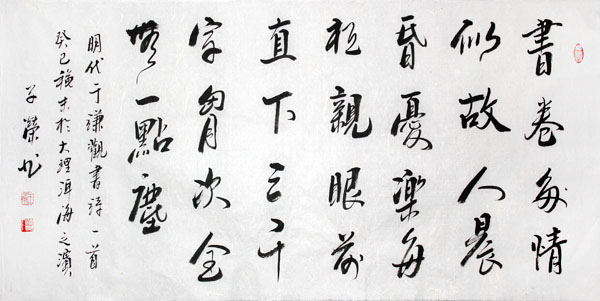 書卷多情
似故人晨
昏憂樂每
相親眼前
直下三千
字胸次全
無一點塵
明代于謙觀書詩一首
癸巳秋末於大理洱海之濱
子榮书